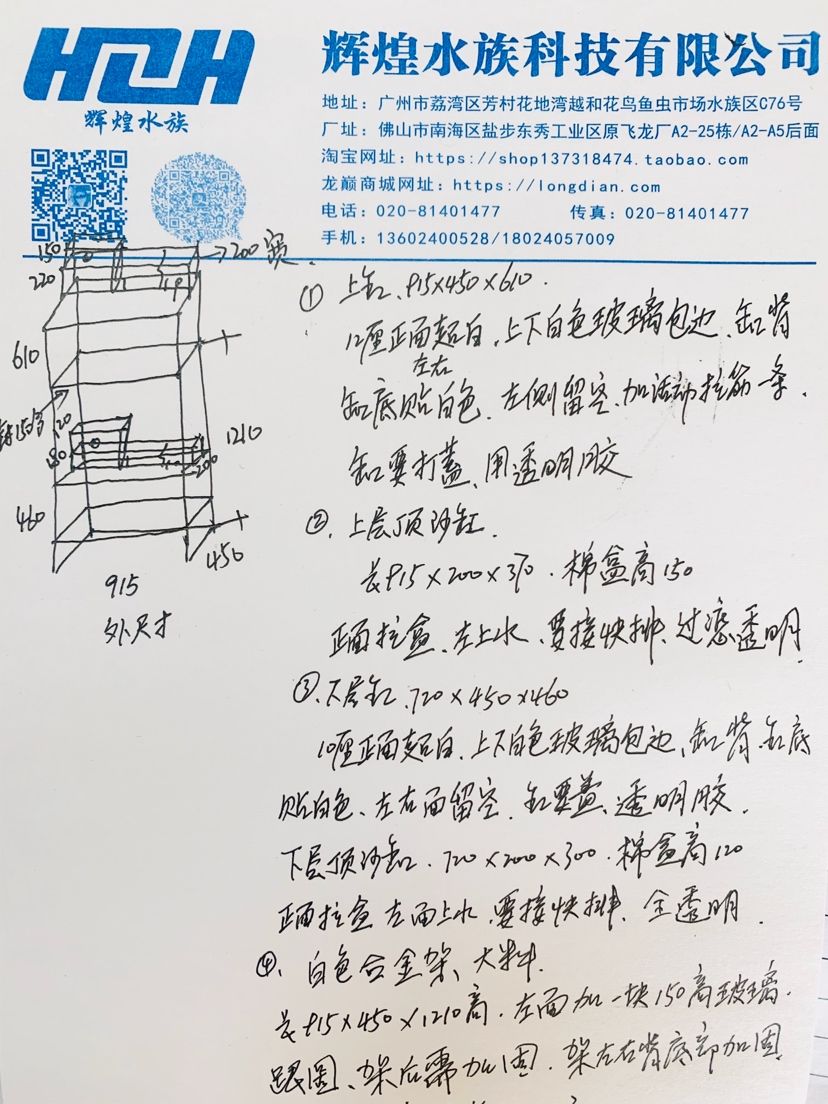 HZH
辉煌水族
辉煌水族科技有限公司
地址：广州市荔湾区芳村花地湾越和花鸟鱼虫市场水族区C76号
厂址：佛山市南海区盐步东秀工业区原飞龙厂A2-25栋/A2-A5后面
淘宝网址：https://shop137318474.taobao.com
龙巅商城网址：https://longdian.com
电话：020-81401477 传真：020-81401477
手机：13602400528/18024057009
150
220
→200宽
610
150高
120
180
200
1210
460
450
915
外尺寸
① 上缸、915×450×610.
12厘正面超白，上下白色玻璃包边、缸背
左右
缸底贴白色、左侧留空、加活动拉筋一条.
缸要打盖、用透明胶
②、上层顶沙缸.
长915×200×370．棉盒高150
正面拉盒、左上水、要接快排、过滤透明.
③、下层缸、720×450×460
10厘正面超白、上下白色玻璃包边、缸背、缸底
贴白色、左右面留空、缸要盖、透明胶.
下层顶沙缸．720×200×300．棉盒高120
正面拉盒、左面上水、要接快排、全透明.
④、白色合金架、大料.
长915×450×1210高．左面加一块150高玻璃.
跟图、架后需加固．架左右背底部加固